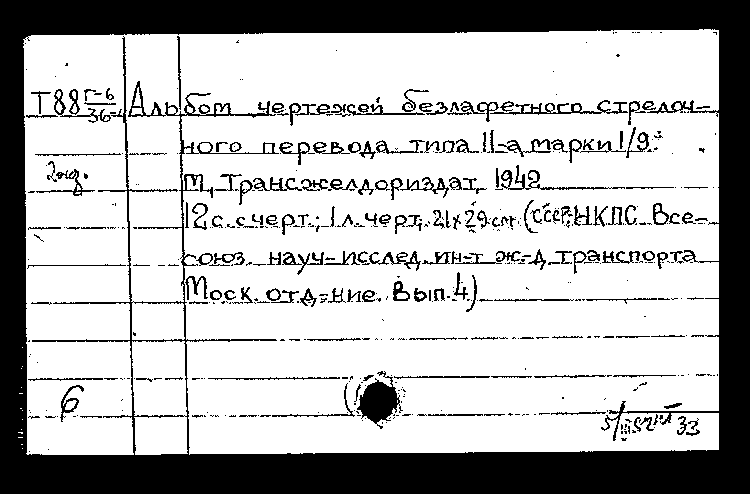 Т88 Г-6/36-4 Альбом чертежей безлафетного стрелоч-
ного перевода типа II-а, марки 1/9.
2 экз.
М, Трансжелдориздат, 1942
12 с. с черт.; 1 л. черт. 21х29 см (СССР. НКПС. Все-
союз. науч-исслед. ин-т ж-д транспорта
Моск. отд-ние. Вып. 4)
6
33